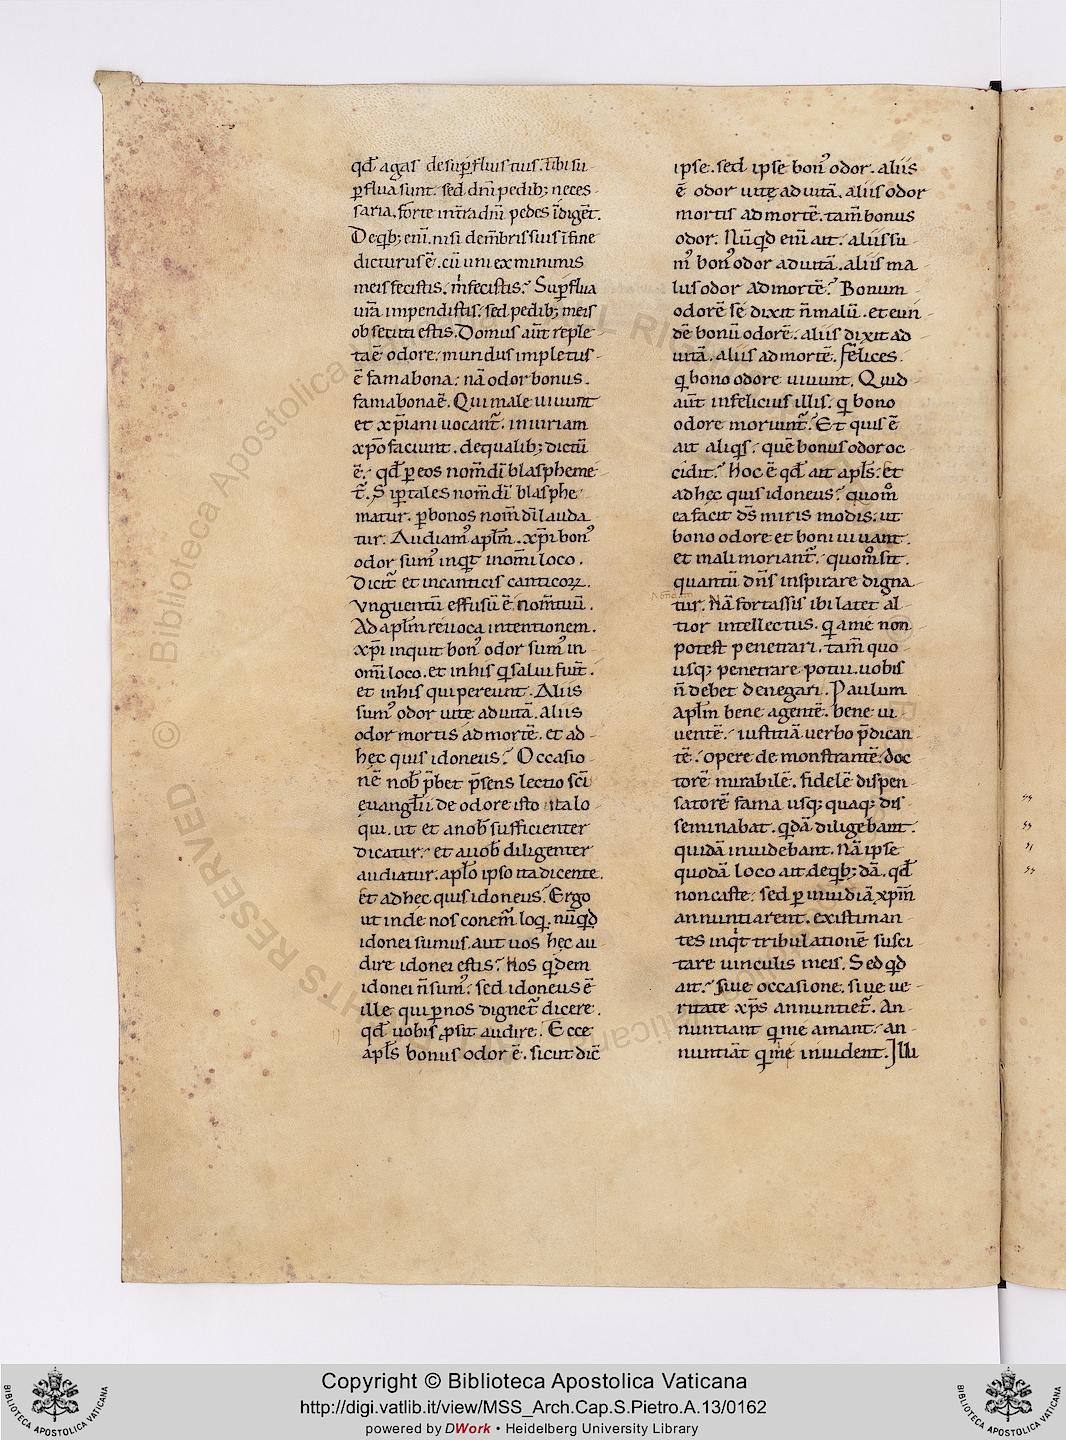 qd̄ agas desup̄fluis tuis. Tibi su-
p̄flua sunt. sed dn̄i pedib; neces-
saria. forte int̄ra dn̄i pedes īdigēt.
Deqb; enī. nisi demēbris suis ī fine
dicturus ē. cū uni ex minimis
meis fecistis. m̄ fecistis.? Sup̄flua
ur̄a impendistis. sed pedib; meis
obsecuti estis. Domus aūt reple-
ta ē odore. mundus impletus
ē fama bona. nā odor bonus.
fama bona ē. Qui male uiuunt
et xp̄iani uocant̄. iniuriam
xp̄o faciunt. dequalib; dictū
ē. qd̄ p̄ eos nom̄ dī blaspheme-
t̄. S ip̄ tales nom̄ dī blasphe-
matur. p̄ bonos nom̄ dn̄i lauda
tur. Audiam᾿ apl̄m. xp̄i bon᾿
odor sum᾿ inqͥt inom̄i loco.
Dicit̄ et incanticis canticoꝝ.
Vnguentū effusū ē nom̄ tuū.
Ad apl̄m reuoca intentionem.
xp̄i inquit bon᾿ odor sum᾿ in
om̄i loco. et inhis qͥ salui fiūt.
et inhis qui pereunt. Aliis
sum᾿ odor uitę ad uitā. aliis
odor mortis ad mortē. et ad
hęc quis idoneus.? Occasio-
nē nob̄ p̄bet p̄sens lectio sc̄i
euanglīi de odore isto ita lo
qui. ut et anob̄ sufficienter
dicatur. et auob̄ diligenter
audiatur. aplo᷎ ipso ita dicente.
Et ad hęc quis idoneus.? Ergo
ut inde nos conem̄ loqͥ. nūqͥd
idonei sumus. aut uos hęc au-
dire idonei estis.? Nos qͥdem
idonei n̄ sum᾿. sed idoneus ē
ille qui p̄ nos dignet̄ dicere.
qd̄ uobis ꝓsit audire. Ecce
apl̄s bonus odor ē. sicut dic̄
ipse. sed ipse bon᾿ odor. aliis
ē odor uitę ad uitā. aliis odor
mortis ad mortē. tam̄ bonus
odor. Nūqͥd enī ait. aliis su-
m᾿ bon᾿ odor ad uitā. aliis ma-
lus odor ad mortē.? Bonum
odorē sē dixit n̄ malū. et eun-
dē bonū odorē. aliis dixit ad
uitā. aliis ad mortē. Felices
qͥ bono odore uiuunt. Quid
aūt infelicius illis. qͥ bono
odore moriunt̄.? Et quis ē
ait aliqͥs. quē bonus odor oc-
cidit.? Hoc ē qd̄ ait apl̄s. et
ad hęc quis idoneus.? quom̊
ea facit ds̄ miris modis. ut
bono odore et boni uiuant.
et mali moriant̄. quom̊ sit.
quantū dn̄s inspirare digna-
tur. Nā fortassis ibi latet al-
tior intellectus. qͥ a me non
potest penetrari. tam̄ quo
usq; penetrare potui. uobis
n̄ debet denegari. Paulum
Apl̄m bene agentē. bene ui-
uentē. iustitiā uerbo p̄dican-
tē. opere demonstrantē. doc-
torē mirabilē. fidelē dispen-
satorē fama usq;quaq; dis-
seminabat. qͥdā diligebant.
quidā inuidebant. Nā ipse
quodā loco ait. deqͥb;dā. qd̄
non caste. sed p̄ inuidiā xp̄m̄
annuntiarent. existiman-
tes inqͥt tribulationē susci-
tare uinculis meis. Sed qͥd
ait.? siue occasione. siue ue-
ritate xp̄s annuntiet̄. An-
nuntiant qͥ me amant. an-
nuntiāt qͥ me inuident. Illi
Copyright © Biblioteca Apostolica Vaticana
http://digi.vatlib.it/view/MSS_Arch.Cap.S.Pietro.A.13/0162
powered by DWork • Heidelberg University Library